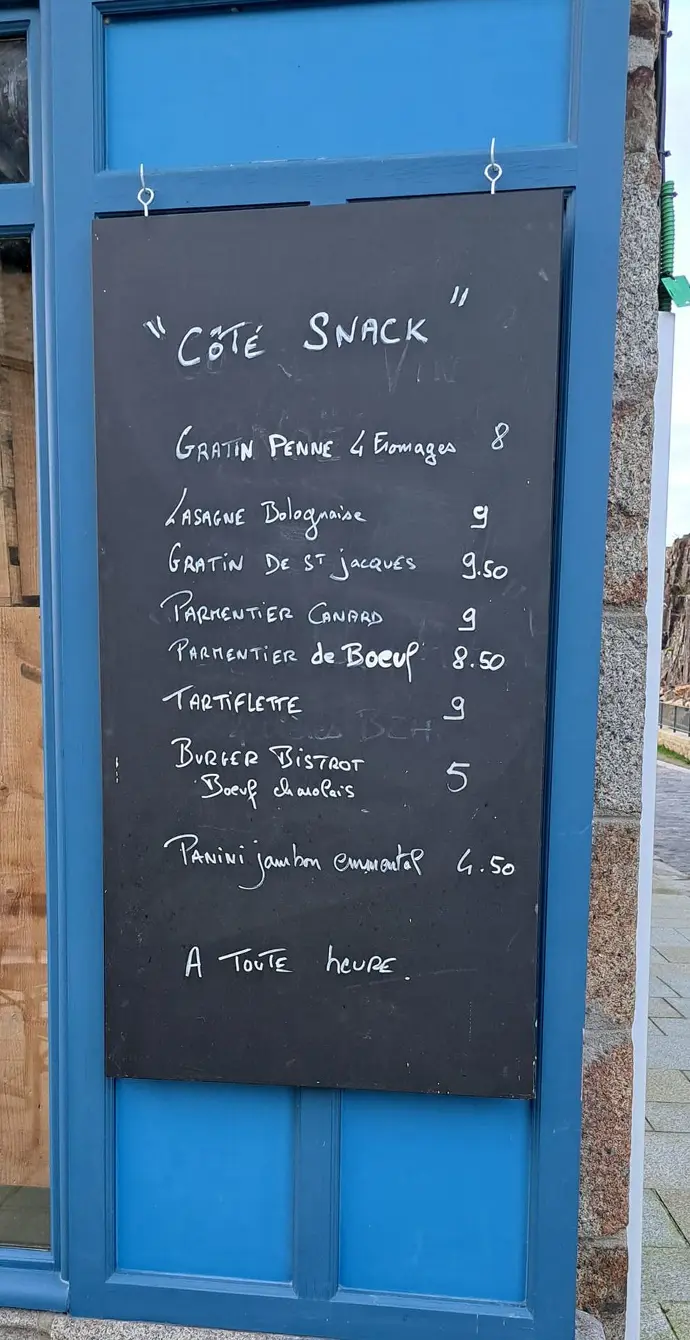 "CÔTÉ SNACK"
GRATIN PENNE 4 Fromages 8
LASAGNE Bolognaise 9
GRATIN DE ST JACQUES 9.50
PARMENTIER CANARD 9
PARMENTIER de Boeuf 8.50
TARTIFLETTE 9
BURGER BISTROT 5
Boeuf charolais
PANINI jambon emmental 4.50
A TOUTE heURE.